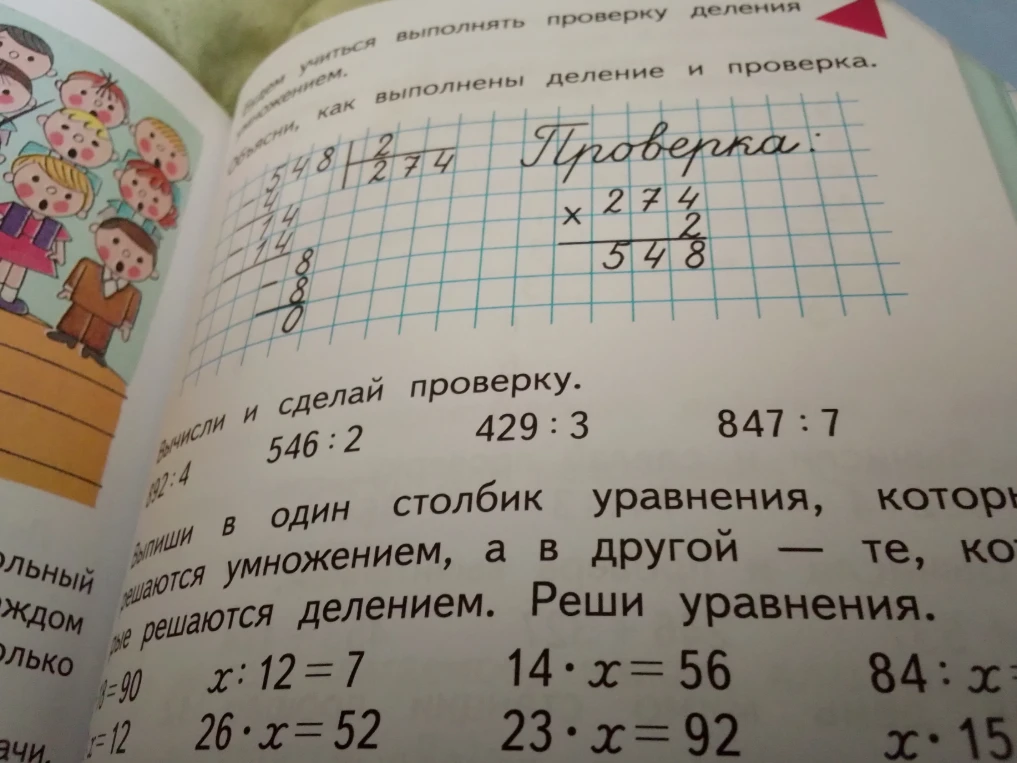 учиться выполнять проверку деления
умножением.
Объясни, как выполнены деление и проверка.
548 | 2
- 4 274
14
- 14
8
- 8
0
Проверка:
× 274
2
548
Вычисли и сделай проверку.
892 : 4 546 : 2 429 : 3 847 : 7
Выпиши в один столбик уравнения, которы
решаются умножением, а в другой — те, ко
рые решаются делением. Реши уравнения.
3=90 x : 12 = 7 14 · x = 56 84 : x =
x=12 26 · x = 52 23 · x = 92 x · 15
ольный
аждом
олько
ачи.